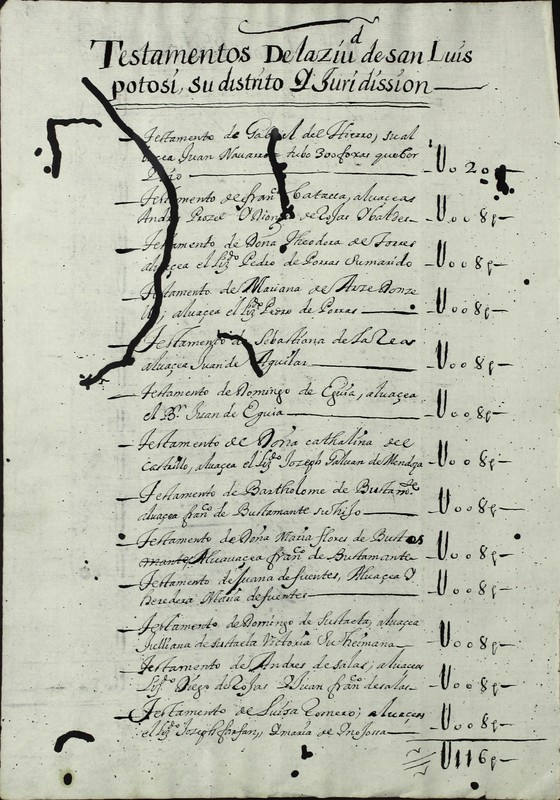 Testamentos De la ziu^d de san Luis
potosi, su distrito Y Juridission
Testamento de Gabriel del Hierro, su al
bacea Juan Navarro tubo 300 foxas
U o 20 p
Testamento de fran^co alvaceas
Andres y de Rojas
U o o 8 p
Testamento de Doña Theodora de Torres
alvaçea el Liz^do Pedro de Porras su marido
U o o 8 p
Testamento de Mariana de Arze Donze
lla, alvaçea el Liz^do Pedro de Porras
U o o 8 p
Testamento de Sebastiana de
alvaçea Juan de Aguilar
U o o 8 p
Testamento de Domingo de Eguia, alvaçea
el B^r Juan de Eguia
U o o 8 p
Testamento de Doña Cathalina del
Castillo, alvaçea el Liz^do Joseph Galvan de Mendoza
U o o 8 p
Testamento de Bartholome de Bustam^te
alvaçea fran^co de Bustamante su hijo
U o o 8 p
Testamento de Doña Maria flores de Bust
mante, Alvaacea fran^co de Bustamante
U o o 8 p
Testamento de Juana de fuentes, Alvaçea Y
heredera Maria de fuentes
U o o 8 p
Testamento de Domingo de Sustaeta, alvaçea
Julliana de sustaeta Victoria Su Hermana
U o o 8 p
Testamento de Andres de salas, alvaceas
Liz^do Diego de Rojas Y Juan fran^co de salas
U o o 8 p
Testamento de Luisa Romero; alvaceas
el Liz^do Joseph farfan, Y maria de Inojossa
U o o 8 p
U 116 p